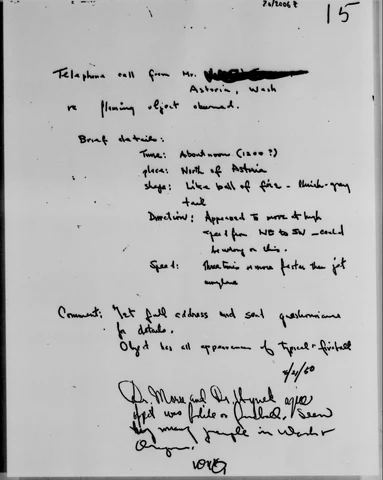 20/2006Z
15
Telephone call from Mr.
Astoria, Wash
re flaming object observed.
Brief details:
Time: About noon (1200?)
place: North of Astoria
shape: Like ball of fire - thick-gray
tail
Direction: Appeared to move at high
speed from NE to SW - could
be wrong on this.
Speed: Three times or more faster than jet
airplane
Comment: Get full address and send questionnaire
for details.
Object has all appearance of typical fireball
Dr. and Dr. Hynek agree
object was bolide or fireball. Seen
by many people in Wash &
Oregon.